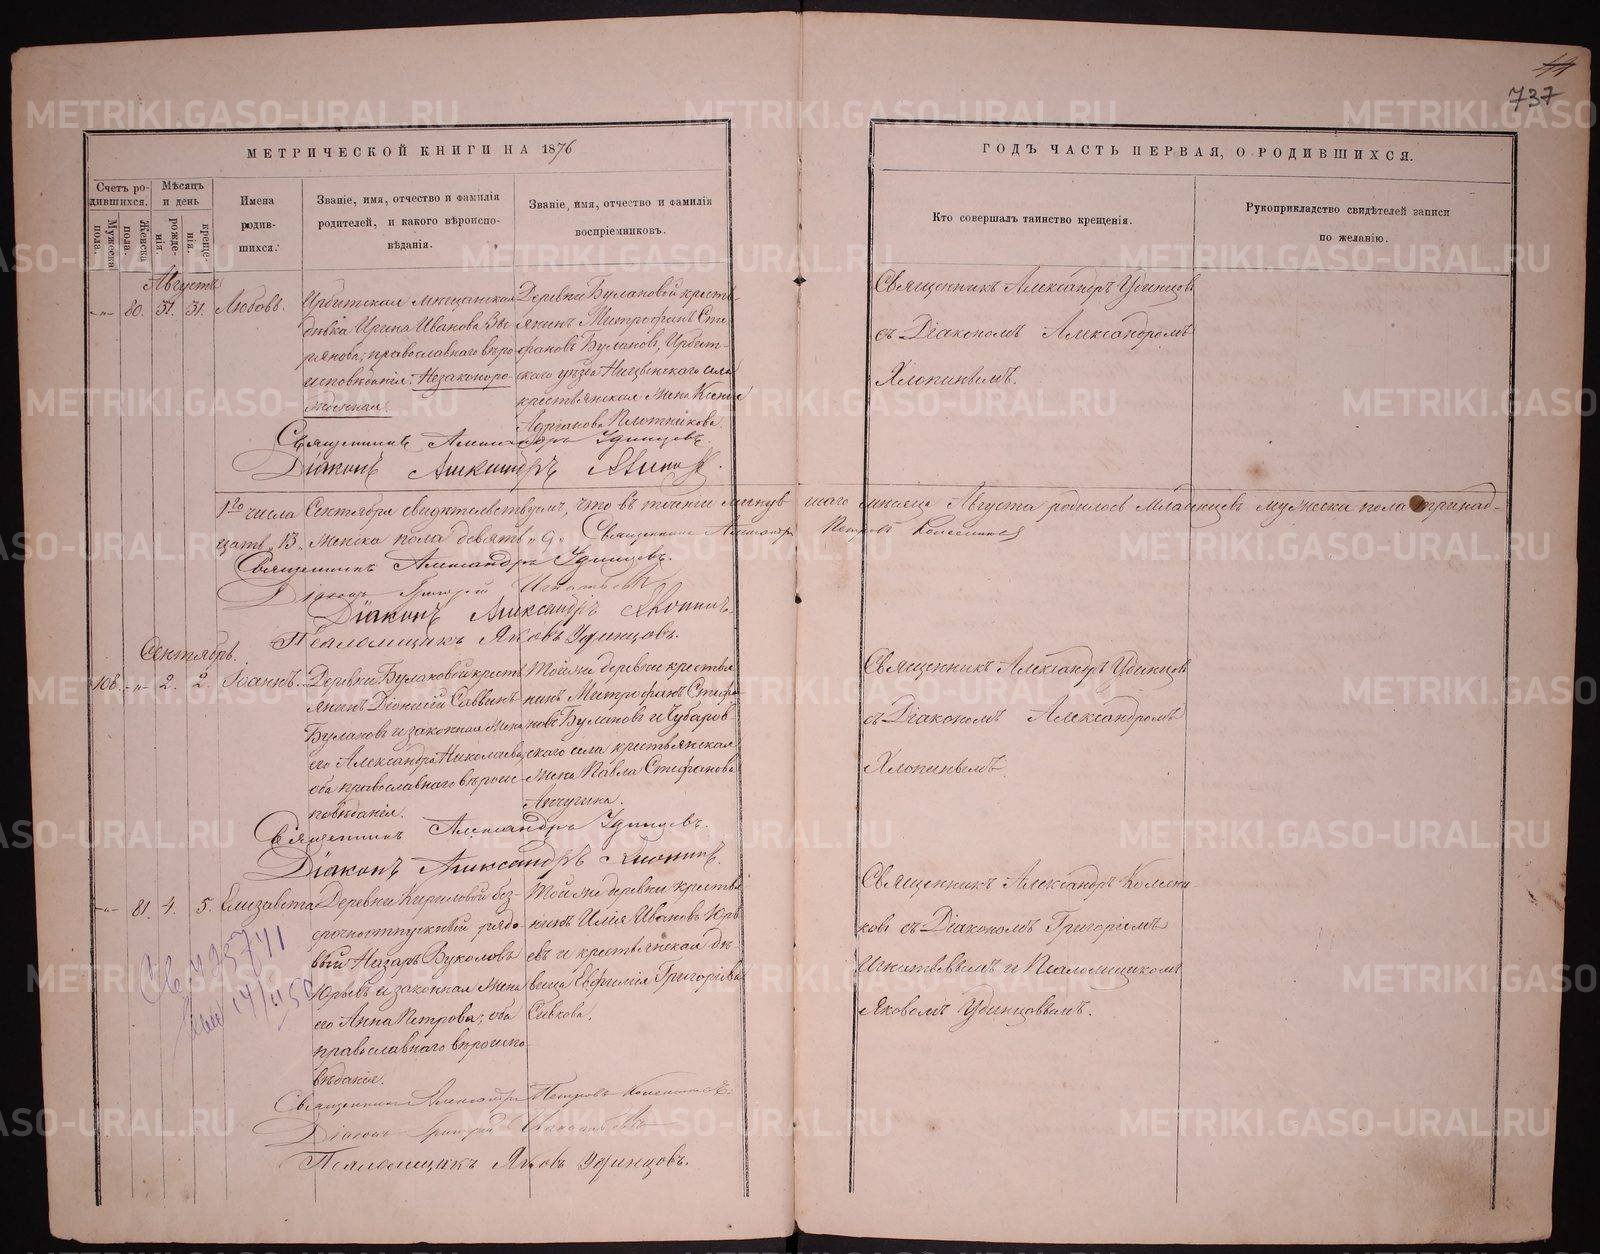 44
737
МЕТРИЧЕСКОЙ КНИГИ НА 1876
ГОДЪ ЧАСТЬ ПЕРВАЯ, О РОДИВШИХСЯ.
Счетъ ро-
дившихся.
Мужеска
пола.
Женска
пола.
Мѣсяцъ
и день
рожде-
нія.
креще-
нія.
Имена
родив-
шихся.
Званіе, имя, отчество и фамилія
родителей, и какого вѣроиспо-
вѣданія.
Званіе, имя, отчество и фамилія
воспріемниковъ.
Кто совершалъ таинство крещенія.
Рукоприкладство свидѣтелей записи
по желанію.
Августъ
-„- 80. 31. 31. Любовь.
Ирбитская мѣщанская
дѣвка Ирина Иванова
православнаго вѣро
исповѣданія. Незаконоро-
жденная.
Деревни Булановой кресть-
янинъ Митрофанъ Сте
фановъ Булановъ, Ирбит-
скаго уѣзда Ницинскаго села
крестьянская жена Ксенія
Адріанова Плотникова.
Священникъ Александръ Удинцовъ
съ Діакономъ Александромъ
Хлопинымъ.
Священникъ Александръ Удинцевъ.
Діаконъ Александръ Хлопинъ.
1го числа Сентября свидѣтельствуемъ, что въ теченіи минув шаго мѣсяца Августа родилось младенцевъ мужеска пола тринад-
цать „13„ женска пола девять „9„ Священникъ Александръ Петровъ Колесниковъ
Священникъ Александръ Удинцевъ.
Діаконъ Григорій Игнатьевъ
Діаконъ Александръ Хлопинъ.
Псаломщикъ Яковъ Удинцовъ.
Сентябрь.
108. -„- 2. 2. Іоаннъ.
Деревни Булановой кресть
янинъ Діонисій Саввинъ
Булановъ и законная жена
его Александра Николаева,
оба православнаго вѣроис
повѣданія.
Той же деревни крестья
нинъ Митрофанъ Стефа
новъ Булановъ и Чубаров-
скаго села крестьянская
жена Павла Стефанова
Анчугина.
Священникъ Александръ Удинцовъ
съ Діакономъ Александромъ
Хлопинымъ.
Священникъ Александръ Удинцевъ.
Діаконъ Александръ Хлопинъ.
-„- 81. 4. 5. Елизавета
Деревни Кириловой без-
срочноотпускный рядо-
вый Назаръ Вуколовъ
Юрьевъ и законная жена
его Анна Петрова; оба
православнаго вѣроиспо-
вѣданія.
Той же деревни крестья
нинъ Илія Ивановъ Юрь
евъ и крестьянская дѣ
вица Евфимія Григорьева
Сивкова.
Священникъ Александръ Колесни
ковъ съ Діакономъ Григоріемъ
Игнатьевымъ и Псаломщикомъ
Яковомъ Удинцовымъ.
Священникъ Александръ Петровъ Колесниковъ.
Діаконъ Григорій Игнатьевъ
Псаломщикъ Яковъ Удинцовъ.
METRIKI.GASO-URAL.RU